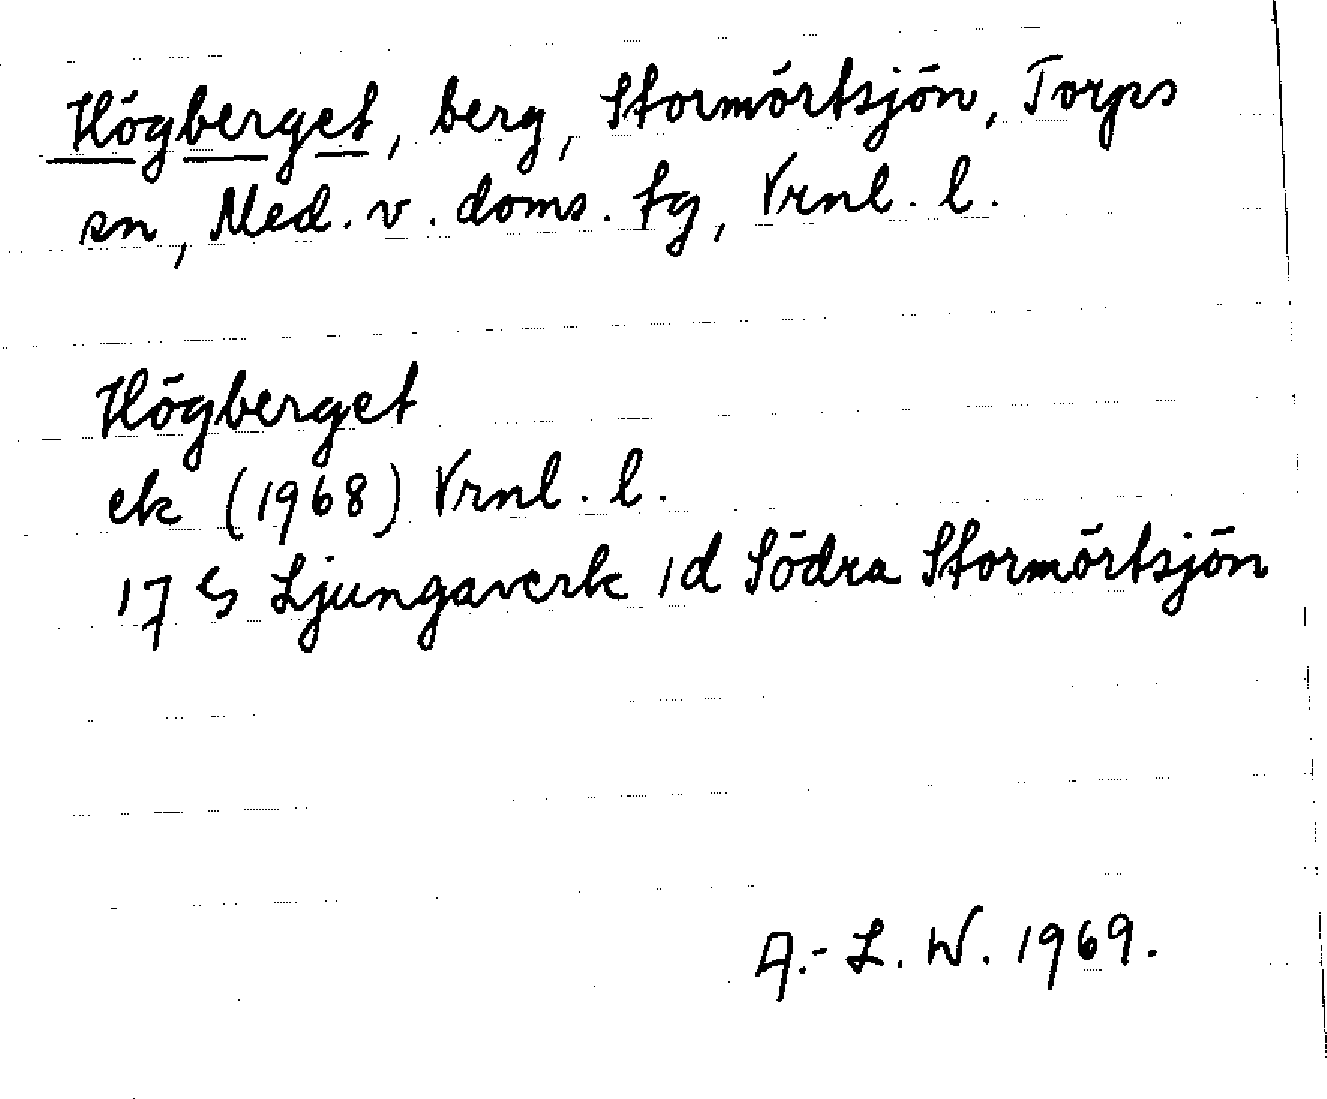 Högberget, berg, Stormörtsjön, Torps
sn, Med. v. doms. tg, Vrnl. l.
Högberget
ek (1968) Vrnl. l.
17 G Ljungaverk 1d Södra Stormörtsjön
A.-L. W. 1969.